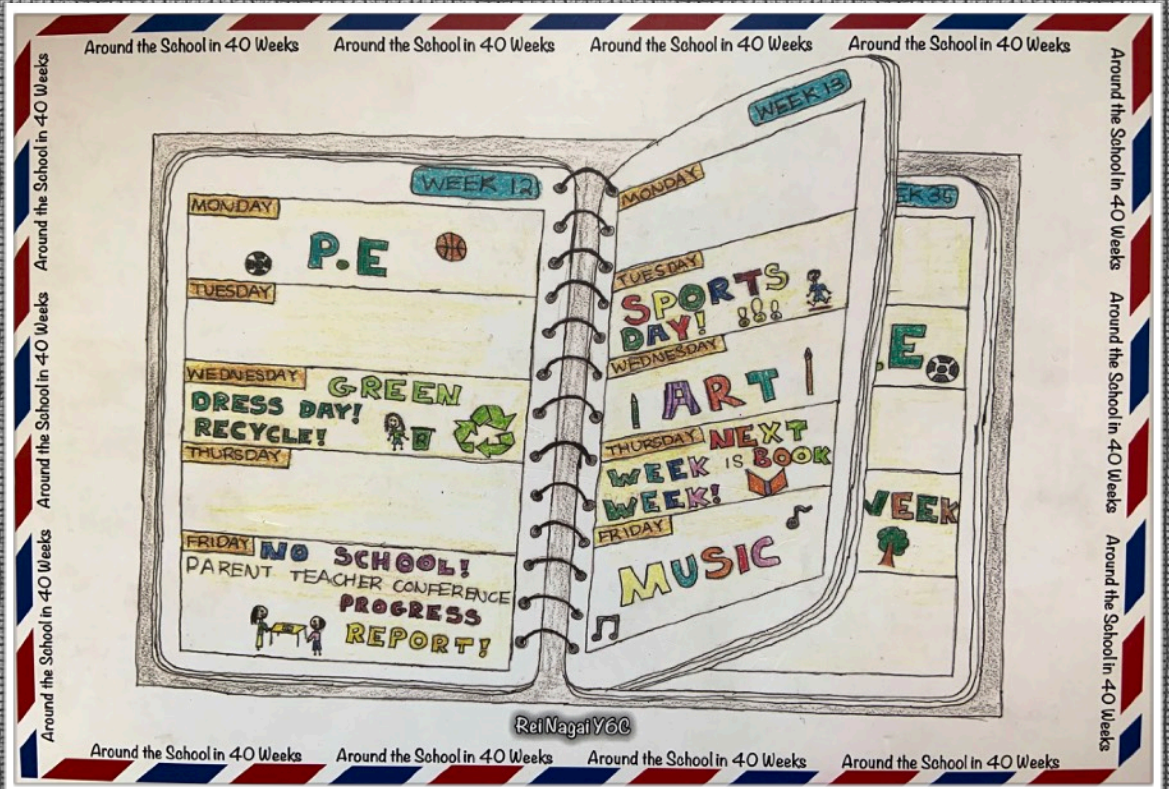 Around the School in 40 Weeks
Around the School in 40 Weeks
Around the School in 40 Weeks
Around the School in 40 Weeks
Around the School in 40 Weeks
Around the School in 40 Weeks
Around the School in 40 Weeks
WEEK 12
MONDAY
P.E
TUESDAY
WEDNESDAY GREEN
DRESS DAY!
RECYCLE!
THURSDAY
FRIDAY NO SCHOOL!
PARENT TEACHER CONFERENCE
PROGRESS
REPORT!
WEEK 13
MONDAY
TUESDAY
SPORTS
DAY!
WEDNESDAY
ART
THURSDAY NEXT
WEEK IS BOOK
WEEK!
FRIDAY
MUSIC
EK 35
.E
WEEK
Around the School in 40 Weeks
Around the School in 40 Weeks
Around the School in 40 Weeks
Rei Nagai Y6C
Around the School in 40 Weeks
Around the School in 40 Weeks
Around the School in 40 Weeks
Around the School in 40 Weeks